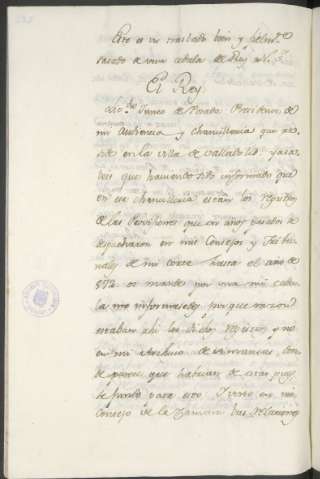 Este es un traslado bien y fielmte
sacado de una cedula de
El Rey
Licdo Junco de Posada Presidente de
mi Audiencia y chancilleria que re
side en la villa de Valladolid ya sa
veis que haviendo sido informado que
en esa chancilleria estan los registros
de las Provisiones que en años pasados se
despacharon en mis Consejos y Tribu
nales de mi corte hasta el año de
os mande por una mi cedu
la me informasedes por que razon
estaban ahi los dichos registros y no
en mi Archivo de Simancas, don
de parece que habian de estar pues
se fundó para esto Y visto en mi
Consejo de la Camara las relaciones